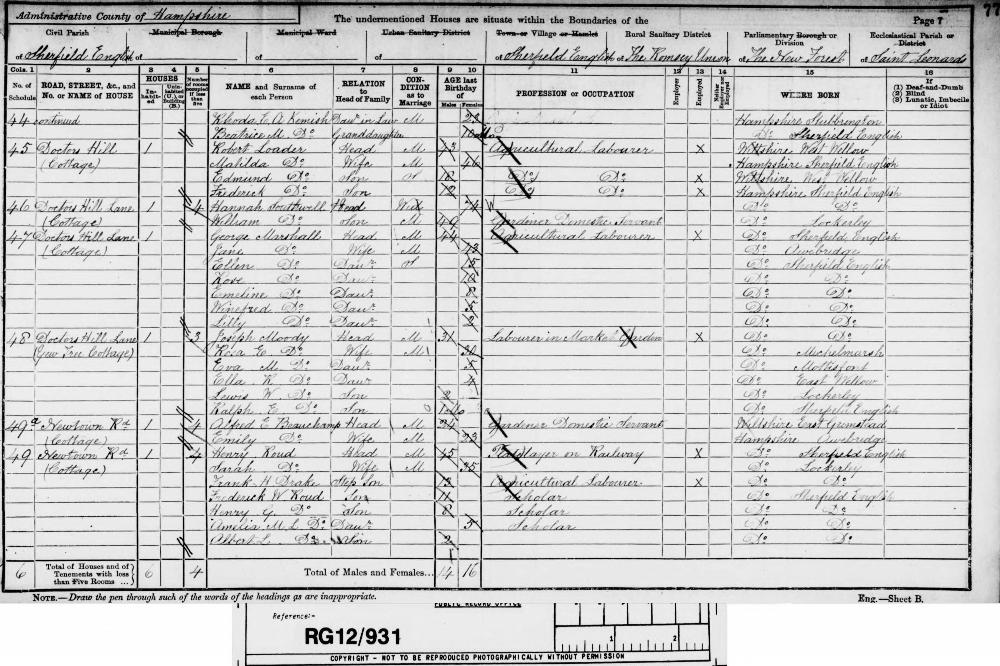 Administrative County of Hampshire
The undermentioned Houses are situate within the Boundaries of the
Page 7
77
Civil Parish Municipal Borough Municipal Ward Urban Sanitary District Town or Village or Hamlet Rural Sanitary District Parliamentary Borough or Division Ecclesiastical Parish or District
of Sherfield English of of of of Sherfield English of The Romsey Union of The New Forest of Saint Leonards
Cols. 1 2 3 4 5 6 7 8 9 10 11 12 13 14 15 16
No. of Schedule ROAD, STREET, &c., and No. or NAME of HOUSE HOUSES Inhabited Uninhabited (U.) or Building (B.) Number of rooms occupied if less than five NAME and Surname of each Person RELATION to Head of Family CONDITION as to Marriage AGE last Birthday of Males Females PROFESSION or OCCUPATION Employer Employed Neither employer nor employed WHERE BORN If (1) Deaf-and-Dumb (2) Blind (3) Lunatic, Imbecile or Idiot
44 continued Rhoda E. A. Kemish Daur in Law M 23 Hampshire
Beatrice M. Do Granddaughter 10 mo Do Sherfield English
45 Doctors Hill 1 Robert Loader Head M 43 Agricultural Labourer X Wiltshire West Wellow
(Cottage) Matilda Do Wife M 46 Hampshire Sherfield English
Edmund Do Son S 18 Do Do X Wiltshire West Wellow
Frederick Do Son 12 Do Do X Hampshire Sherfield English
46 Doctors Hill Lane 1 4 Hannah Southwell Head Wid 74 Do Do
(Cottage) William Do Son M 49 Gardener Domestic Servant Do Lockerley
47 Doctors Hill Lane 1 George Marshall Head M 44 Agricultural Labourer X Do Sherfield English
(Cottage) Jane Do Wife M Do Awebridge
Ellen Do Daur S 15 Do Sherfield English
Do Daur 10 Do Do
Emeline Do Daur 8 Do Do
Winefred Do Daur 5 Do Do
Lilly Do Daur 2 Do Do
48 Doctors Hill Lane 1 3 Joseph Moody Head M 31 Labourer in Market Garden X Do Do
(Yew Tree Cottage) Rosa E. Do Wife M 30 Do Michelmarsh
Eva M. Do Daur 5 Do Mottisfont
Ella K. Do Daur 4 Do East Wellow
Lewis W. Do Son 2 Do Lockerley
Ralph E. Do Son Do Sherfield English
49a Newtown Rd 1 4 Alfred E Beauchamp Head M 24 Gardener Domestic Servant Wiltshire East Grimstead
(Cottage) Emily Do Wife M 23 Hampshire Awebridge
49 Newtown Rd 1 4 Henry Roud Head M 45 Platelayer on Railway X Do Sherfield English
(Cottage) Sarah Do Wife M 35 Do Lockerley
Frank H Drake Step Son 13 Agricultural Labourer X Do Do
Frederick W Roud Son 11 Scholar Do Sherfield English
Henry G. Do Son 8 Scholar Do Do
Amelia M. L. Do Daur 5 Scholar Do Do
Albert L. Do Son 2 Do Do
6 Total of Houses and of Tenements with less than Five Rooms ... 6 4 Total of Males and Females... 14 16
NOTE.—Draw the pen through such of the words of the headings as are inappropriate.
Eng.—Sheet B.
PUBLIC RECORD OFFICE
Reference:-
RG12/931
1 2
COPYRIGHT - NOT TO BE REPRODUCED PHOTOGRAPHICALLY WITHOUT PERMISSION